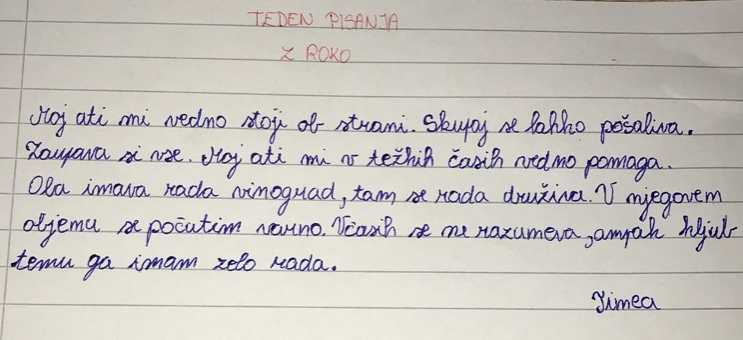 TEDEN PISANJA
Z ROKO
Moj ati mi vedno stoji ob strani. Skupaj se lahko pošaliva.
Zaupava si vse. Moj ati mi v težkih časih vedno pomaga.
Oba imava rada vinograd, tam se rada druživa. V njegovem
objemu se počutim varno. Včasih se ne razumeva, ampak kljub
temu ga imam zelo rada.
Timea